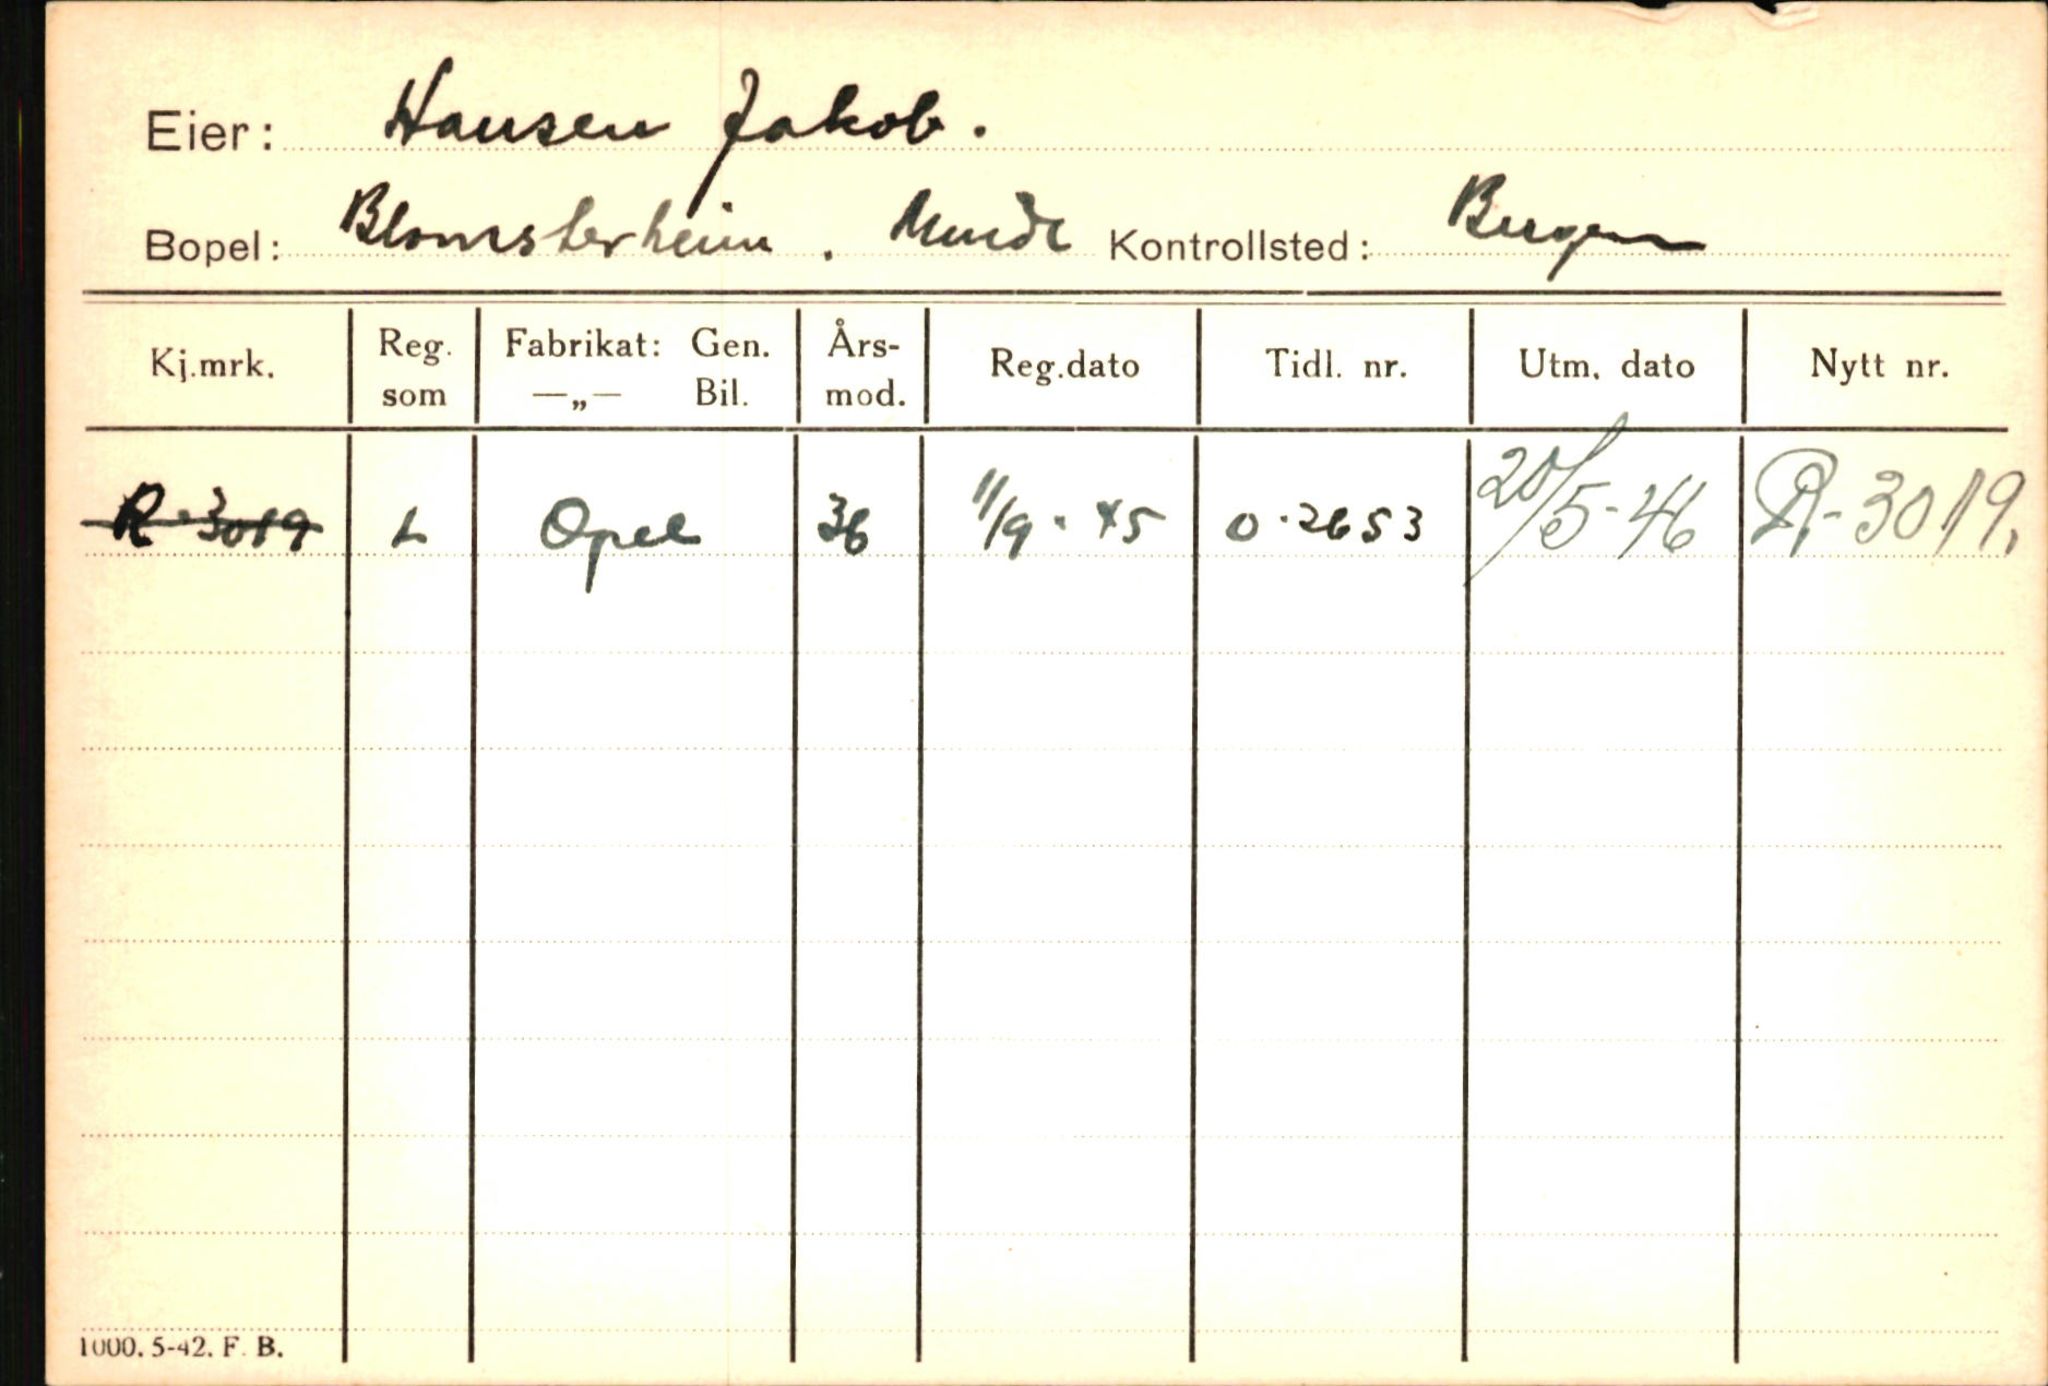 Eier: Hansen Jakob.
Bopel: Blomsterheim. Minde Kontrollsted: Bergen
Kj.mrk. Reg. som Fabrikat: Gen. —„— Bil. Års-mod. Reg.dato Tidl. nr. Utm. dato Nytt nr.
R-3019 L Opel 36 11/9-45 O-2653 20/5-46 R-3019.
1000. 5-42. F. B.